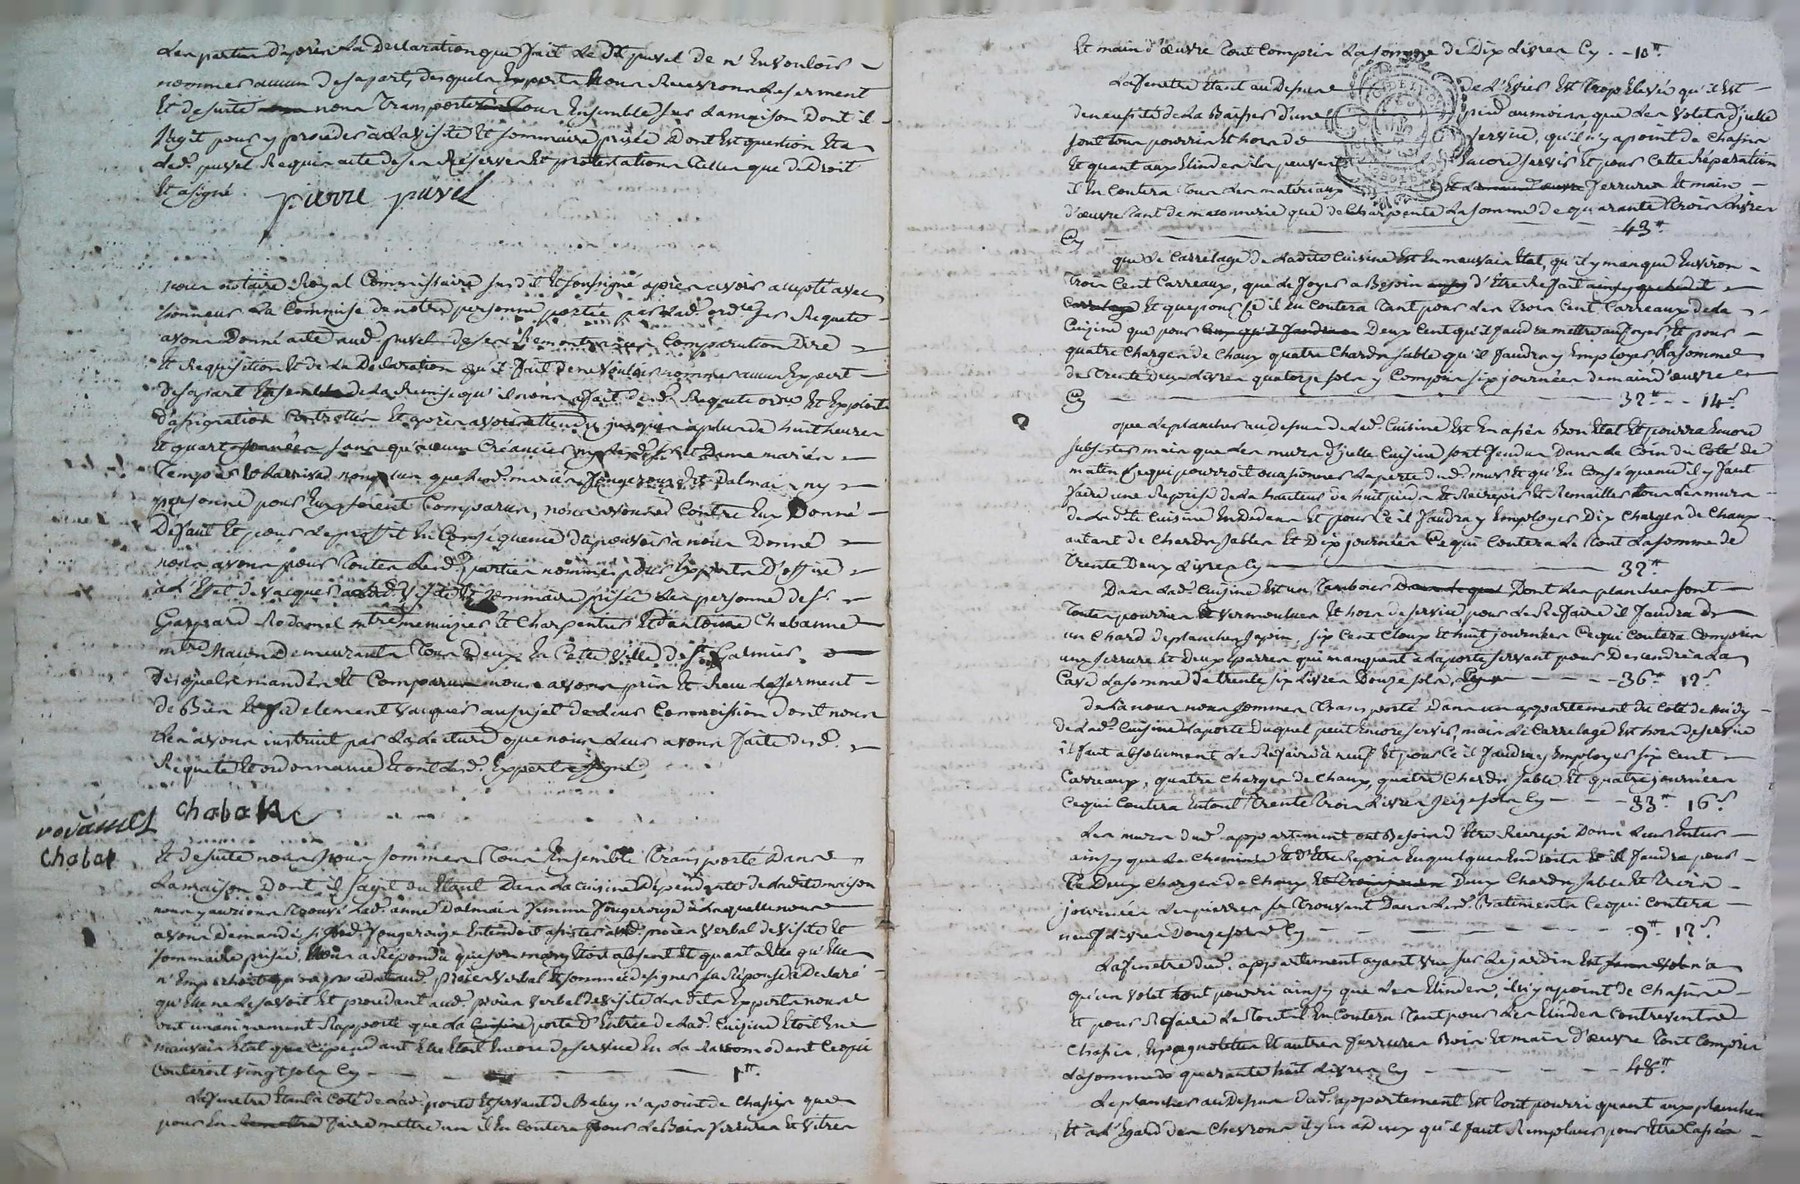 Les parties d'après La Declaration que fait Le dt puvel de n'En vouloir
nommer aucun de sa part, desquels Experts Nous Recevrons Le serment
Et de suitte nous Transporter tous Ensemble sur La maison Dont il
s'agit pour y proceder à La visite Et sommaire prisée Dont Est question Et a
Led. puvel Requis acte de ses Reserves Et protestations Telles que de Droit
Et a signé.
pierre puvel
nous notaire Royal Commissaire susdit Et soussigné après avoir accepté avec
honneur La Commise de notre personne portée par Lad. ordce sur Requete
avons Donné acte aud. puvel de ses Remontrances Comparution Dire
Et Requisition Et de La Declaration qu'il fait de ne vouloir nommer aucun Expert
De sa part Ensemble de La Remise qu'il nous a fait desd. Requete ordce Et Exploits
D'assignation Controllés Et après avoir attendu jusques à plus de huit heures
Et quart sans qu'aucun Créancier ny Lesd. Sr Et Dame mariés
non plus que Lesd. mariés fougerouze Et Dalmais ny
personne pour Eux soient Comparus, nous avons Contre Eux Donné
Defaut Et pour Le proffit En Consequence du pouvoir à nous Donné
nous avons pour toutes Lesd. parties nommé pour Experts D'office
à L'Effet de vacquer aud. visite Et sommaire prisée Les personnes de Sr
Gaspard Rodamel mtre menuizier Et Charpentier Et D'antoine Chabanne
mtre Macon Demeurants Tous Deux En Cette ville de St Galmier,
Desquels mandés Et Comparus nous avons pris Et Recu Le serment
de Bien Et fidelement vacquer au sujet de Leur Commission dont nous
Les avons instruit par La Lecture que nous Leur avons faite desd.
Requete Et ordonnance Et ont Lesd. Experts signé
rodamel chabane
chabat
Et de suitte nous nous sommes Tous Ensemble Transporté Dans
La maison Dont il s'agit ou Etant Dans La cuisine Dependante de Ladite maison
nous y aurions trouvé Lad. anne Dalmais femme fougerouze à Laquelle nous
avons demandé si Led. fougerouze Entendoit assister aud. procès verbal de visite Et
sommaire prisée, Nous a Repondu que son mary Etoit absent Et quant à Elle qu'Elle
n'Empechoit qu'on proceda aud. procès verbal Et sommée de signer sa Reponse a Declaré
qu'Elle ne Le savoit Et procedant aud. procès verbal de visite Lesdits Experts nous
ont unanimement Rapporté que La porte D'Entrée de Lad. Cuisine Etoit En
mauvais Etat que cependant Elle Etoit Encore de service En La Racomodant Ce qui
Couteroit vingt sols Cy — 1tt
La fenetre Etant à Coté de Lad. porte Et servant de Baley n'a point de Chassis que
pour En faire mettre un il En Coutera pour Le Bois ferrures Et vitres
Et main d'œuvre Tout Compris La somme de Dix Livres Cy — 10tt
La fenetre Etant au Dessus de L'Evier Est Trop Elevée qu'il Est
de necessité de La Baisser d'un pied au moins, que Les volets d'icelle
sont tous pourris Et hors de service, qu'il n'y a point de Chassis
Et quant aux Elindes ils peuvent Encore servir Et pour Cette Réparation
il En Coutera tous Les matériaux ferrures Et main
d'œuvre tant de maconnerie que de Charpente La somme de quarante trois Livres
Cy — 43tt
que Le Carrelage de Ladite Cuisine Est En mauvais Etat, qu'il y manque Environ
Trois Cent Carreaux, que Le foyer a Besoin d'Etre Refait
Et que pour Ce il En Coutera Tant pour Les trois Cent Carreaux de La
Cuisine que pour Deux Cent qu'il faudra mettre au foyer, Et pour
quatre Charges de Chaux quatre Chards sable qu'il faudra y Employer La somme
de trente Deux Livres quatorze sols y Compris six journées de main d'œuvre
Cy — 32tt — 14s
que Le plancher au dessus de Lad. Cuisine Est En assés Bon Etat Et pourra Encore
subsister mais que Les murs d'icelle Cuisine sont fendus Dans Le Coin du Coté de
matin Ce qui pourroit occasionner La perte dud. mur Et qu'En Consequence il y faut
faire une Reprise de La hauteur de huit pieds Et Recrepir Et Remailler tous Les murs
de Ladite Cuisine En Dedans Et pour Ce il faudra y Employer Dix Charges de Chaux
autant de Chards sable Et Dix journées Ce qui Coutera Le Tout La somme de
Trente Deux Livres Cy — 32tt
Dans Lad. Cuisine Est un Tambour Dont Les planches sont
Toutes pourries Et vermoulues Et hors de service, pour Le Refaire il faudra
un Chard de planches sapin, six Cent Cloux Et huit journées Ce qui Coutera Compris
une serrure Et Deux Eparres qui manquent à La porte servant pour Descendre à La
Cave La somme de trente six Livres Douze sols Cy — 36tt 12s
de Là nous nous sommes Transporté Dans un appartement du Coté de midy
de Lad. Cuisine La porte Duquel peut Encore servir, mais Le Carrelage Est hors de service
il faut absolument Le Refaire à neuf Et pour Ce il faudra y Employer six Cent
Carreaux, quatre Charges de Chaux, quatre Chards sable Et quatre journées
Ce qui Coutera En tout Trente trois Livres seize sols Cy — 33tt 16s
Les murs dud. appartement ont Besoin d'Etre Recrepi Dans Leur Entier
ainsy que La Cheminée Et D'Etre Repris En quelques Endroits Et il faudra pour
Ce Deux Charges de Chaux Deux Chards sable Et Trois
journées Les pierres se Trouvant Dans Led. Batiment Ce qui Coutera
neuf Livres Douze sols Cy — 9tt 12s
La fenetre dud. appartement ayant vue sur Le jardin n'a
qu'un volet tout pourri ainsy que Les Elindes, il n'y a point de Chassis
Et pour Refaire Le Tout il En Coutera Tant pour Les Elindes Contrevents
Chassis, Espagnolettes Et autres ferrures Bois Et main d'œuvre Tout Compris
La somme de quarante huit Livres Cy — 48tt
Le plancher au Dessus Dud. appartement Est tout pourri quant aux planches
Et à L'Egard des Chevrons il y en a deux qu'il faut Remplacer pour Etre Cassés